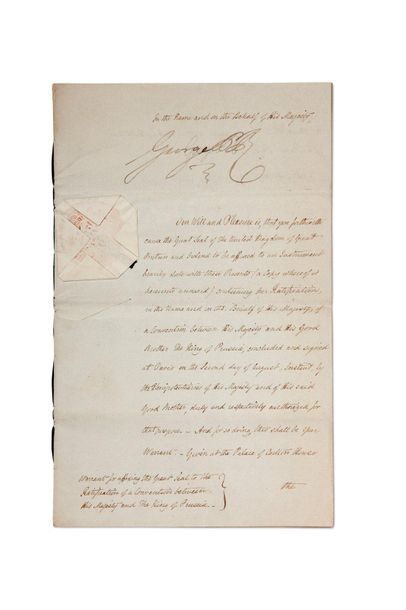 In the Name and on the Behalf of His Majesty
George P R
Our Will and Pleasure is, that you forthwith
cause the Great Seal of the United Kingdom of Great
Britain and Ireland to be affixed to an Instrument
bearing date with these Presents, (a Copy whereof is
hereunto annexed) containing Our Ratification,
in the Name and on the Behalf of His Majesty, of
a Convention between His Majesty and His Good
Brother The King of Prussia, concluded and signed
at Paris on the Second day of August, Instant, by
the Plenipotentiaries of His Majesty and of His said
Good Brother, duly and respectively authorized for
that purpose. — And for so doing this shall be Your
Warrant. — Given at the Palace of Carlton House
the
Warrant for affixing the Great Seal to the
Ratification of a Convention between
His Majesty and The King of Prussia. —